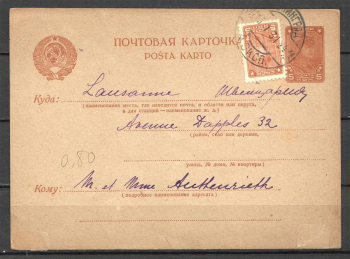 ПОЧТОВАЯ КАРТОЧКА
POŜTA KARTO
Куда: Lausanne Швейцария
(наименование места, где находится почта, и области или округа,
а для станций—наименование ж. д.)
Avenue Dapples 32
(район, село или деревня,
улица, № дома, № квартиры)
0,80
Кому: M. et Mme Authenrieth
(подробное наименование адресата)